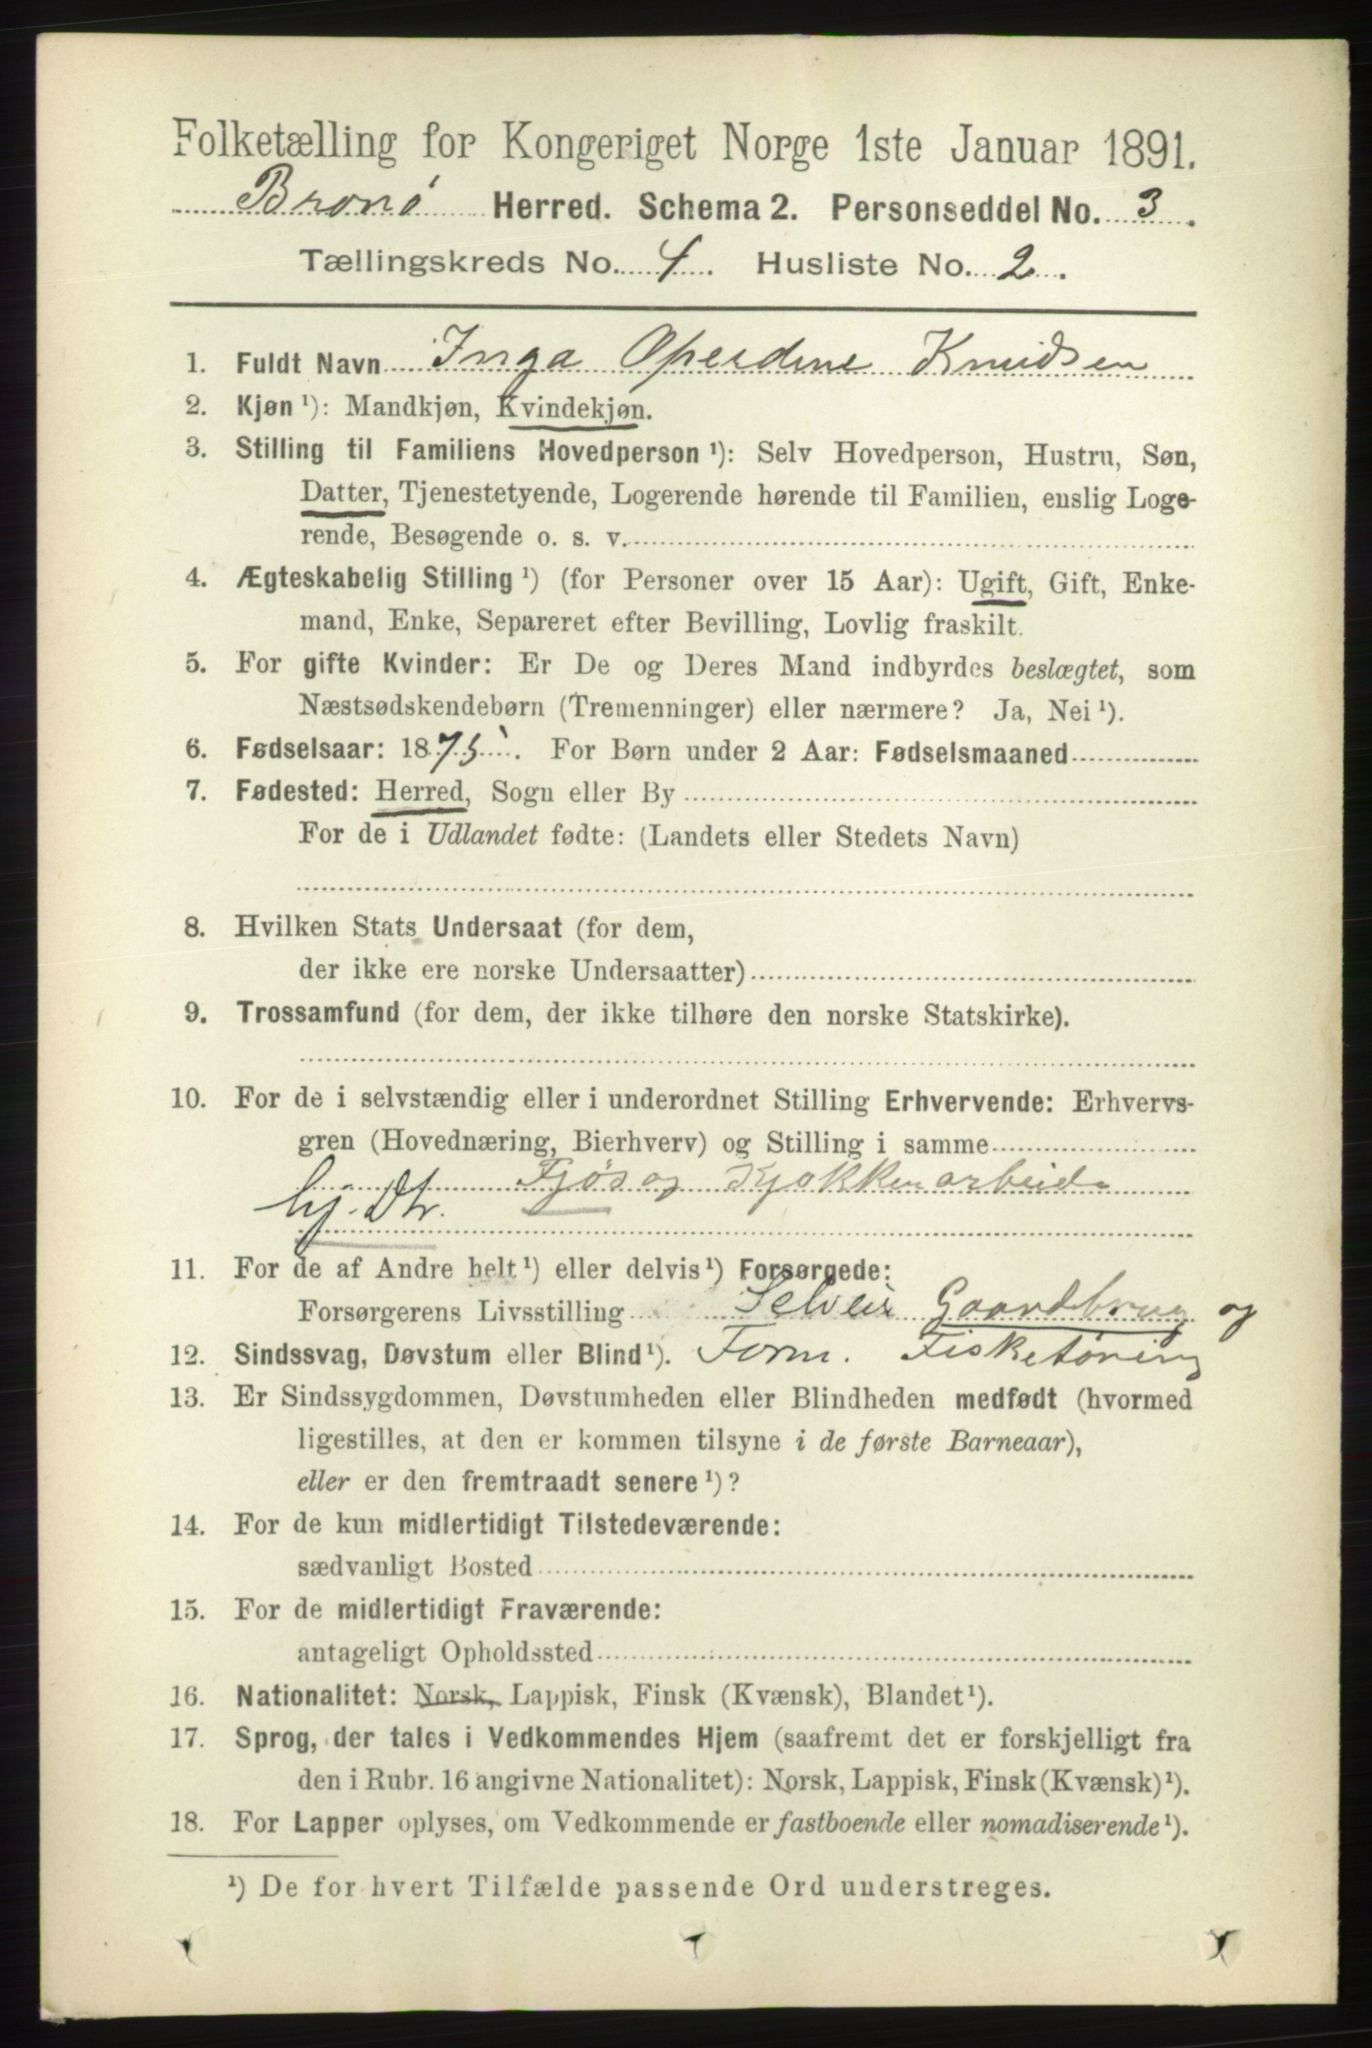 Folketælling for Kongeriget Norge 1ste Januar 1891.
Brønø Herred. Schema 2. Personseddel No. 3.
Tællingskreds No. 4. Husliste No. 2.
1. Fuldt Navn Inga Knudsen
2. Kjøn ¹): Mandkjøn, Kvindekjøn.
3. Stilling til Familiens Hovedperson ¹): Selv Hovedperson, Hustru, Søn,
Datter, Tjenestetyende, Logerende hørende til Familien, enslig Loge-
rende, Besøgende o. s. v.
4. Ægteskabelig Stilling ¹) (for Personer over 15 Aar): Ugift, Gift, Enke-
mand, Enke, Separeret efter Bevilling, Lovlig fraskilt.
5. For gifte Kvinder: Er De og Deres Mand indbyrdes beslægtet, som
Næstsødskendebørn (Tremenninger) eller nærmere? Ja, Nei ¹).
6. Fødselsaar: 1875. For Børn under 2 Aar: Fødselsmaaned
7. Fødested: Herred, Sogn eller By
For de i Udlandet fødte: (Landets eller Stedets Navn)
8. Hvilken Stats Undersaat (for dem,
der ikke ere norske Undersaatter)
9. Trossamfund (for dem, der ikke tilhøre den norske Statskirke).
10. For de i selvstændig eller i underordnet Stilling Erhvervende: Erhvervs-
gren (Hovednæring, Bierhverv) og Stilling i samme
Fjøs og Kjøkkenarbeide
hj. Dtr.
11. For de af Andre helt ¹) eller delvis ¹) Forsørgede:
Forsørgerens Livsstilling Selveier Gaardbrug og
12. Sindssvag, Døvstum eller Blind ¹). Form. Fisketøring
13. Er Sindssygdommen, Døvstumheden eller Blindheden medfødt (hvormed
ligestilles, at den er kommen tilsyne i de første Barneaar),
eller er den fremtraadt senere ¹)?
14. For de kun midlertidigt Tilstedeværende:
sædvanligt Bosted
15. For de midlertidigt Fraværende:
antageligt Opholdssted
16. Nationalitet: Norsk, Lappisk, Finsk (Kvænsk), Blandet ¹).
17. Sprog, der tales i Vedkommendes Hjem (saafremt det er forskjelligt fra
den i Rubr. 16 angivne Nationalitet): Norsk, Lappisk, Finsk (Kvænsk) ¹).
18. For Lapper oplyses, om Vedkommende er fastboende eller nomadiserende ¹).
¹) De for hvert Tilfælde passende Ord understreges.